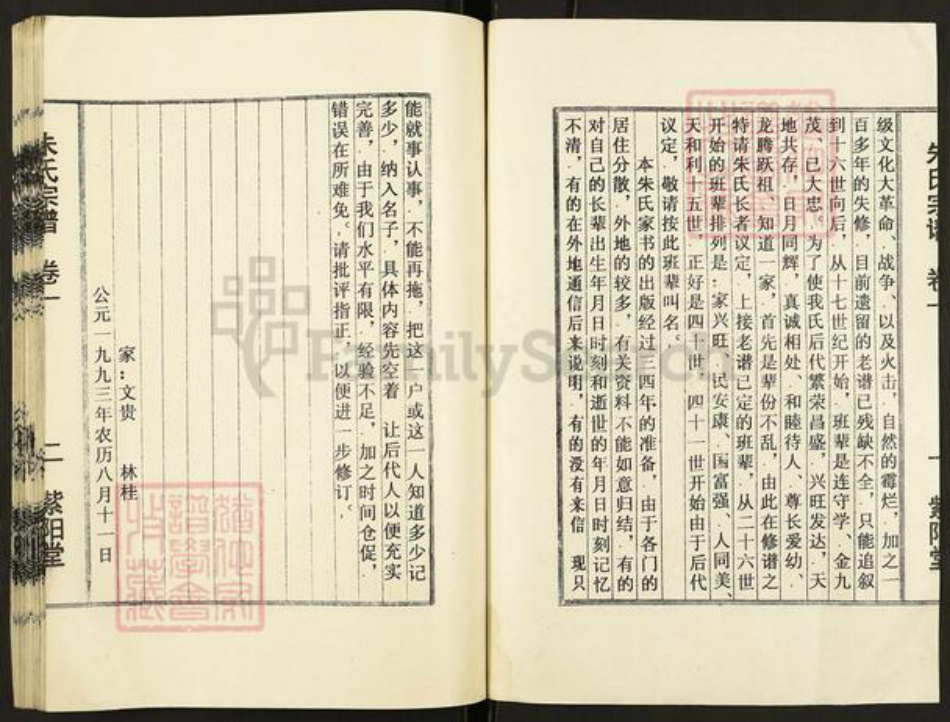 朱氏宗谱 卷一 一 紫阳堂
级文化大革命、战争、以及火击，自然的霉烂，加之一
百多年的失修，目前遗留的老谱已残缺不全，只能追叙
到十六世向后，从十七世纪开始，班辈是连守学、金九
茂、已大忠。为了使我氏后代繁荣昌盛，兴旺发达，天
地共存，日月同辉，真诚相处、和睦待人、尊长爱幼、
龙腾跃祖、知道一家，首先是辈份不乱，由此在修谱之
特请朱氏长者议定，上接老谱已定的班辈，从二十六世
开始的班辈排列是：家兴旺、民安康、国富强、人同美、
天和利十五世，正好是四十世，四十一世开始由于后代
议定，敬请按此班辈叫名。
本朱氏家书的出版经过三四年的准备，由于各门的
居住分散，外地的较多，有关资料不能如意归结，有的
对自己的长辈出生年月日时刻和逝世的年月日时刻记忆
不清，有的在外地通信后来说明，有的没有来信 现只
能就事认事，不能再拖，把这一户或这一人知道多少记
多少，纳入名子，具体内容先空着 让后代人以便充实
完善，由于我们水平有限，经验不足，加之时间仓促，
错误在所难免。请批评指正，以便进一步修订。
家：文贵 林桂
公元一九九三年农历八月十一日
朱氏宗谱 卷一 二 紫阳堂
FamilySearch